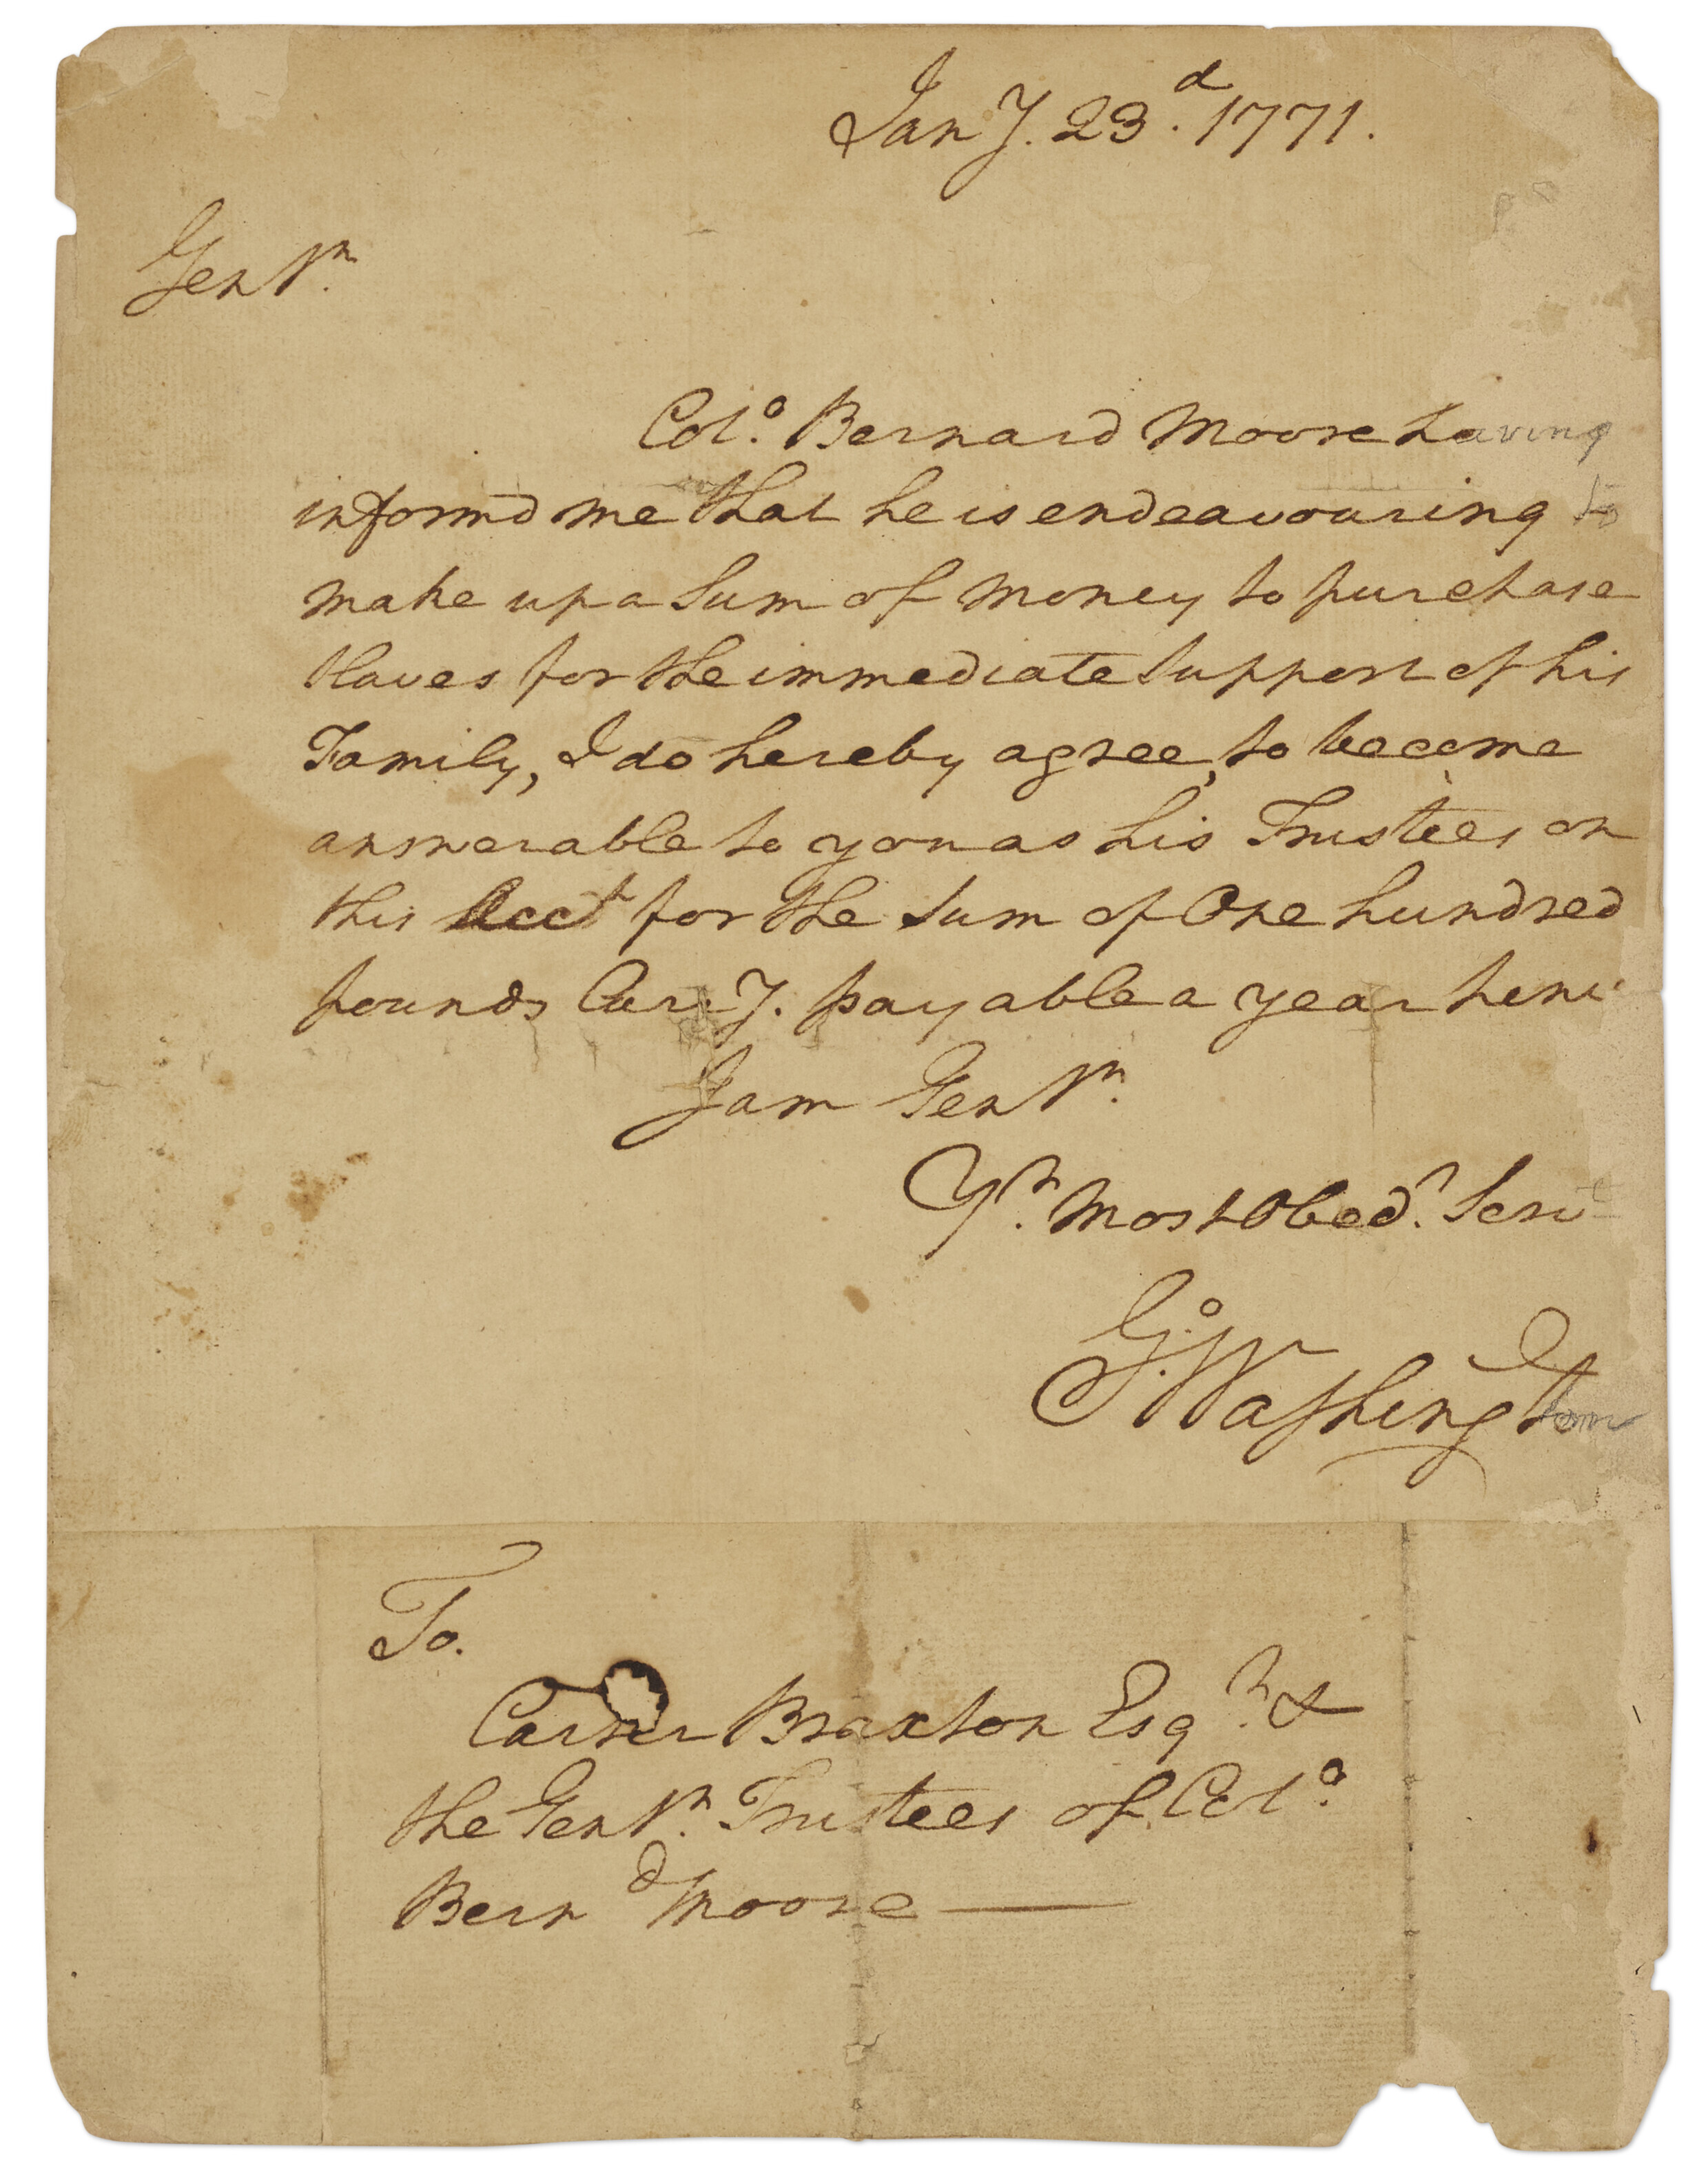 Jany. 23d. 1771.
Gentn.
Colo. Bernard Moore having
informd me that he is endeavouring to
make up a Sum of Money to purchase
Slaves for the immediate Support of his
Family, I do hereby agree, to become
answerable to you as his Trustees on
this Acct for the Sum of One hundred
pounds Curry. payable a year hence
I am Gentn.
Yr. Most Obedt. Servt
Go: Washington
To.
Carter Braxton Esqr. &
the Gentn. Trustees of Colo.
Bernd Moore —